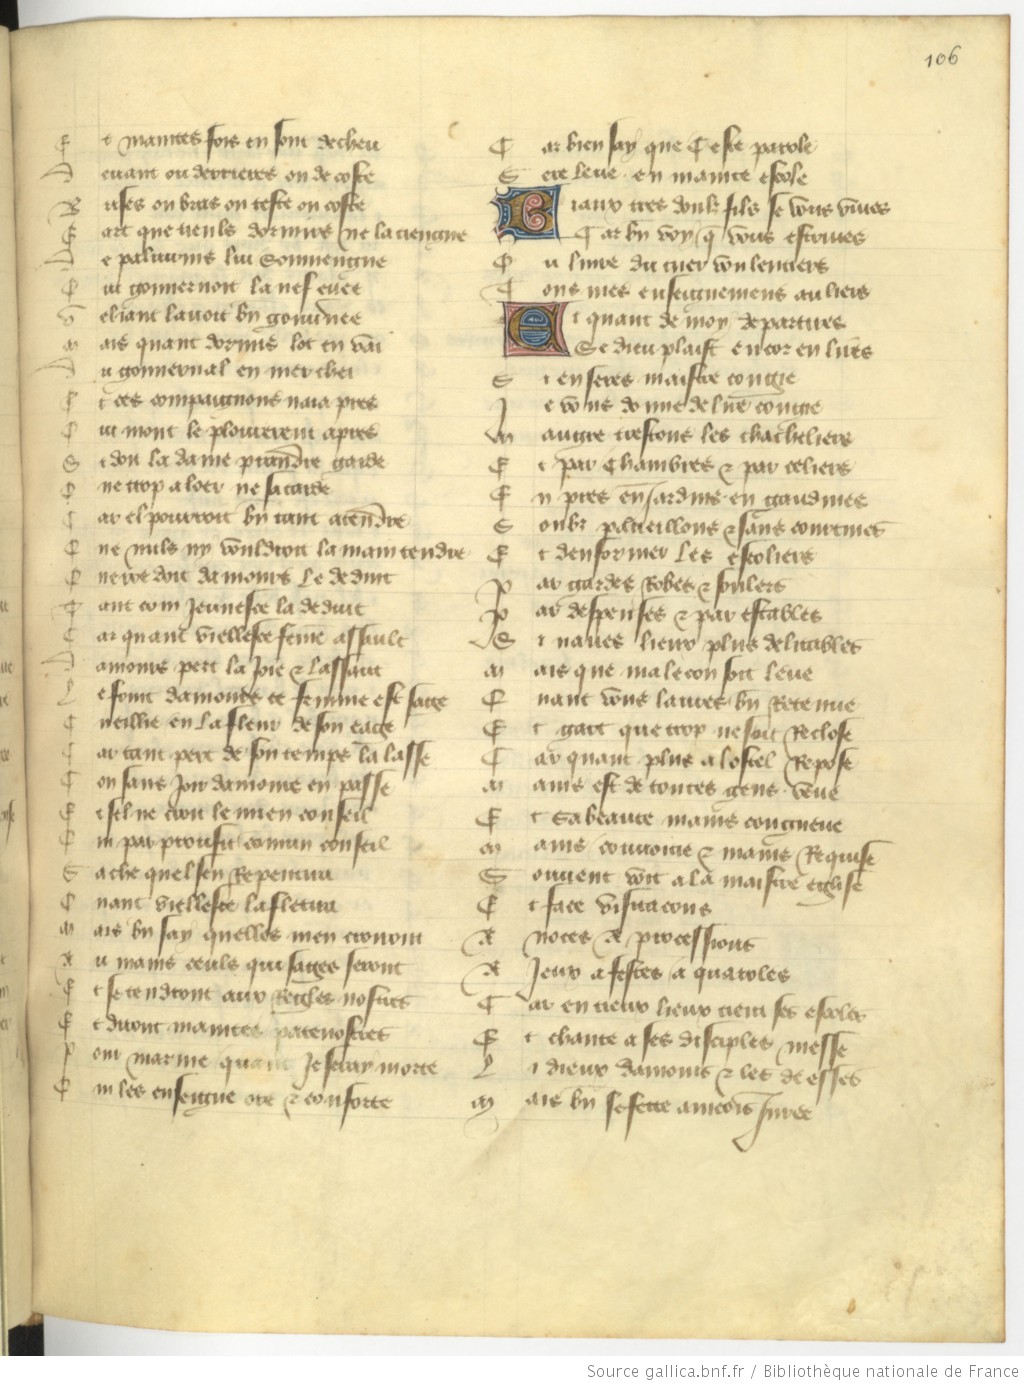 106
Et maintes fois en sont decheu
Devant ou derrieres ou de coste
Ruses ou bras ou teste ou coste
Gart que neuls dormirs ne la tiengne
De palurnus lui Souviengne
Qui gouvernoit la nef enee
veliant lavoit bn gouvnee
Mais quant dormir lot en vai
Du gouvernal en mer chei
Et ces compaignons naia pres
Qui mont le plourerent apres
Si doit la dame prendre garde
Que trop a loer ne se tarde
Car el pourroit bn tant atendre
Que nuls ny vouldroit la main tendre
Querre doit damours le deduit
Tant com Jeunesce la deduit
Car quant viellesce feme assault
Damours pert la Joie & lassaut
Le fruit damours ce femme est sage
Cueillie en la fleur de son eage
Car tant pert de son temps la lasse
Con sans Joir damour en passe
Et sel ne croit le mien conseil
Qui par proufit comun conseil
Sache quel sen Repentira
Quant viellesce la fletira
Mais bn say quelles men croiront
Au mains ceuls qui sages seront
Et se tendront aux Regles nostres
Et diront maintes patenostres
Pour marme quant Je seray morte
Qui les enseigne ore & conforte
Car bien say que Ceste parole
Sera leue en mainte escole
Biaux tres doulx fils se vous vives
Car bn voy q vous escrives
Ou livre du cuer voulentiers
Tous mes enseignemens entiers
Et quant de moy departires
Se dieu plaist encor en lires
Si en seres maistre conge
Je vous donne de lire conge
Maugre trestous les chacheliers
Et par Chambres & par celiers
En pres en Jardins en gaudines
Soubz paueillons & sans courtines
Et denformer les escoliers
Par gardes Robes & soulers
Par despenses & par estables
Si naues lieux plus delitables
Mais que ma lecon soit leue
Quant vous laures bn Retenue
Et gart que trop ne soit Reclose
Car quant plus a lostel Repose
Mains est de toutes gens veue
Et Sa beaute mains congneue
Mains couvoitie & mains Requise
Souvent voit a la maistre eglise
Et face visitacions
A noces A processions
A Jeux a festes a quaroles
Car en tieux lieux tient ses escoles
Et chante a ses disciples messe
Li dieux damours & les deesses
Mais bn se soit aincois Miree
Source gallica.bnf.fr / Bibliothèque nationale de France